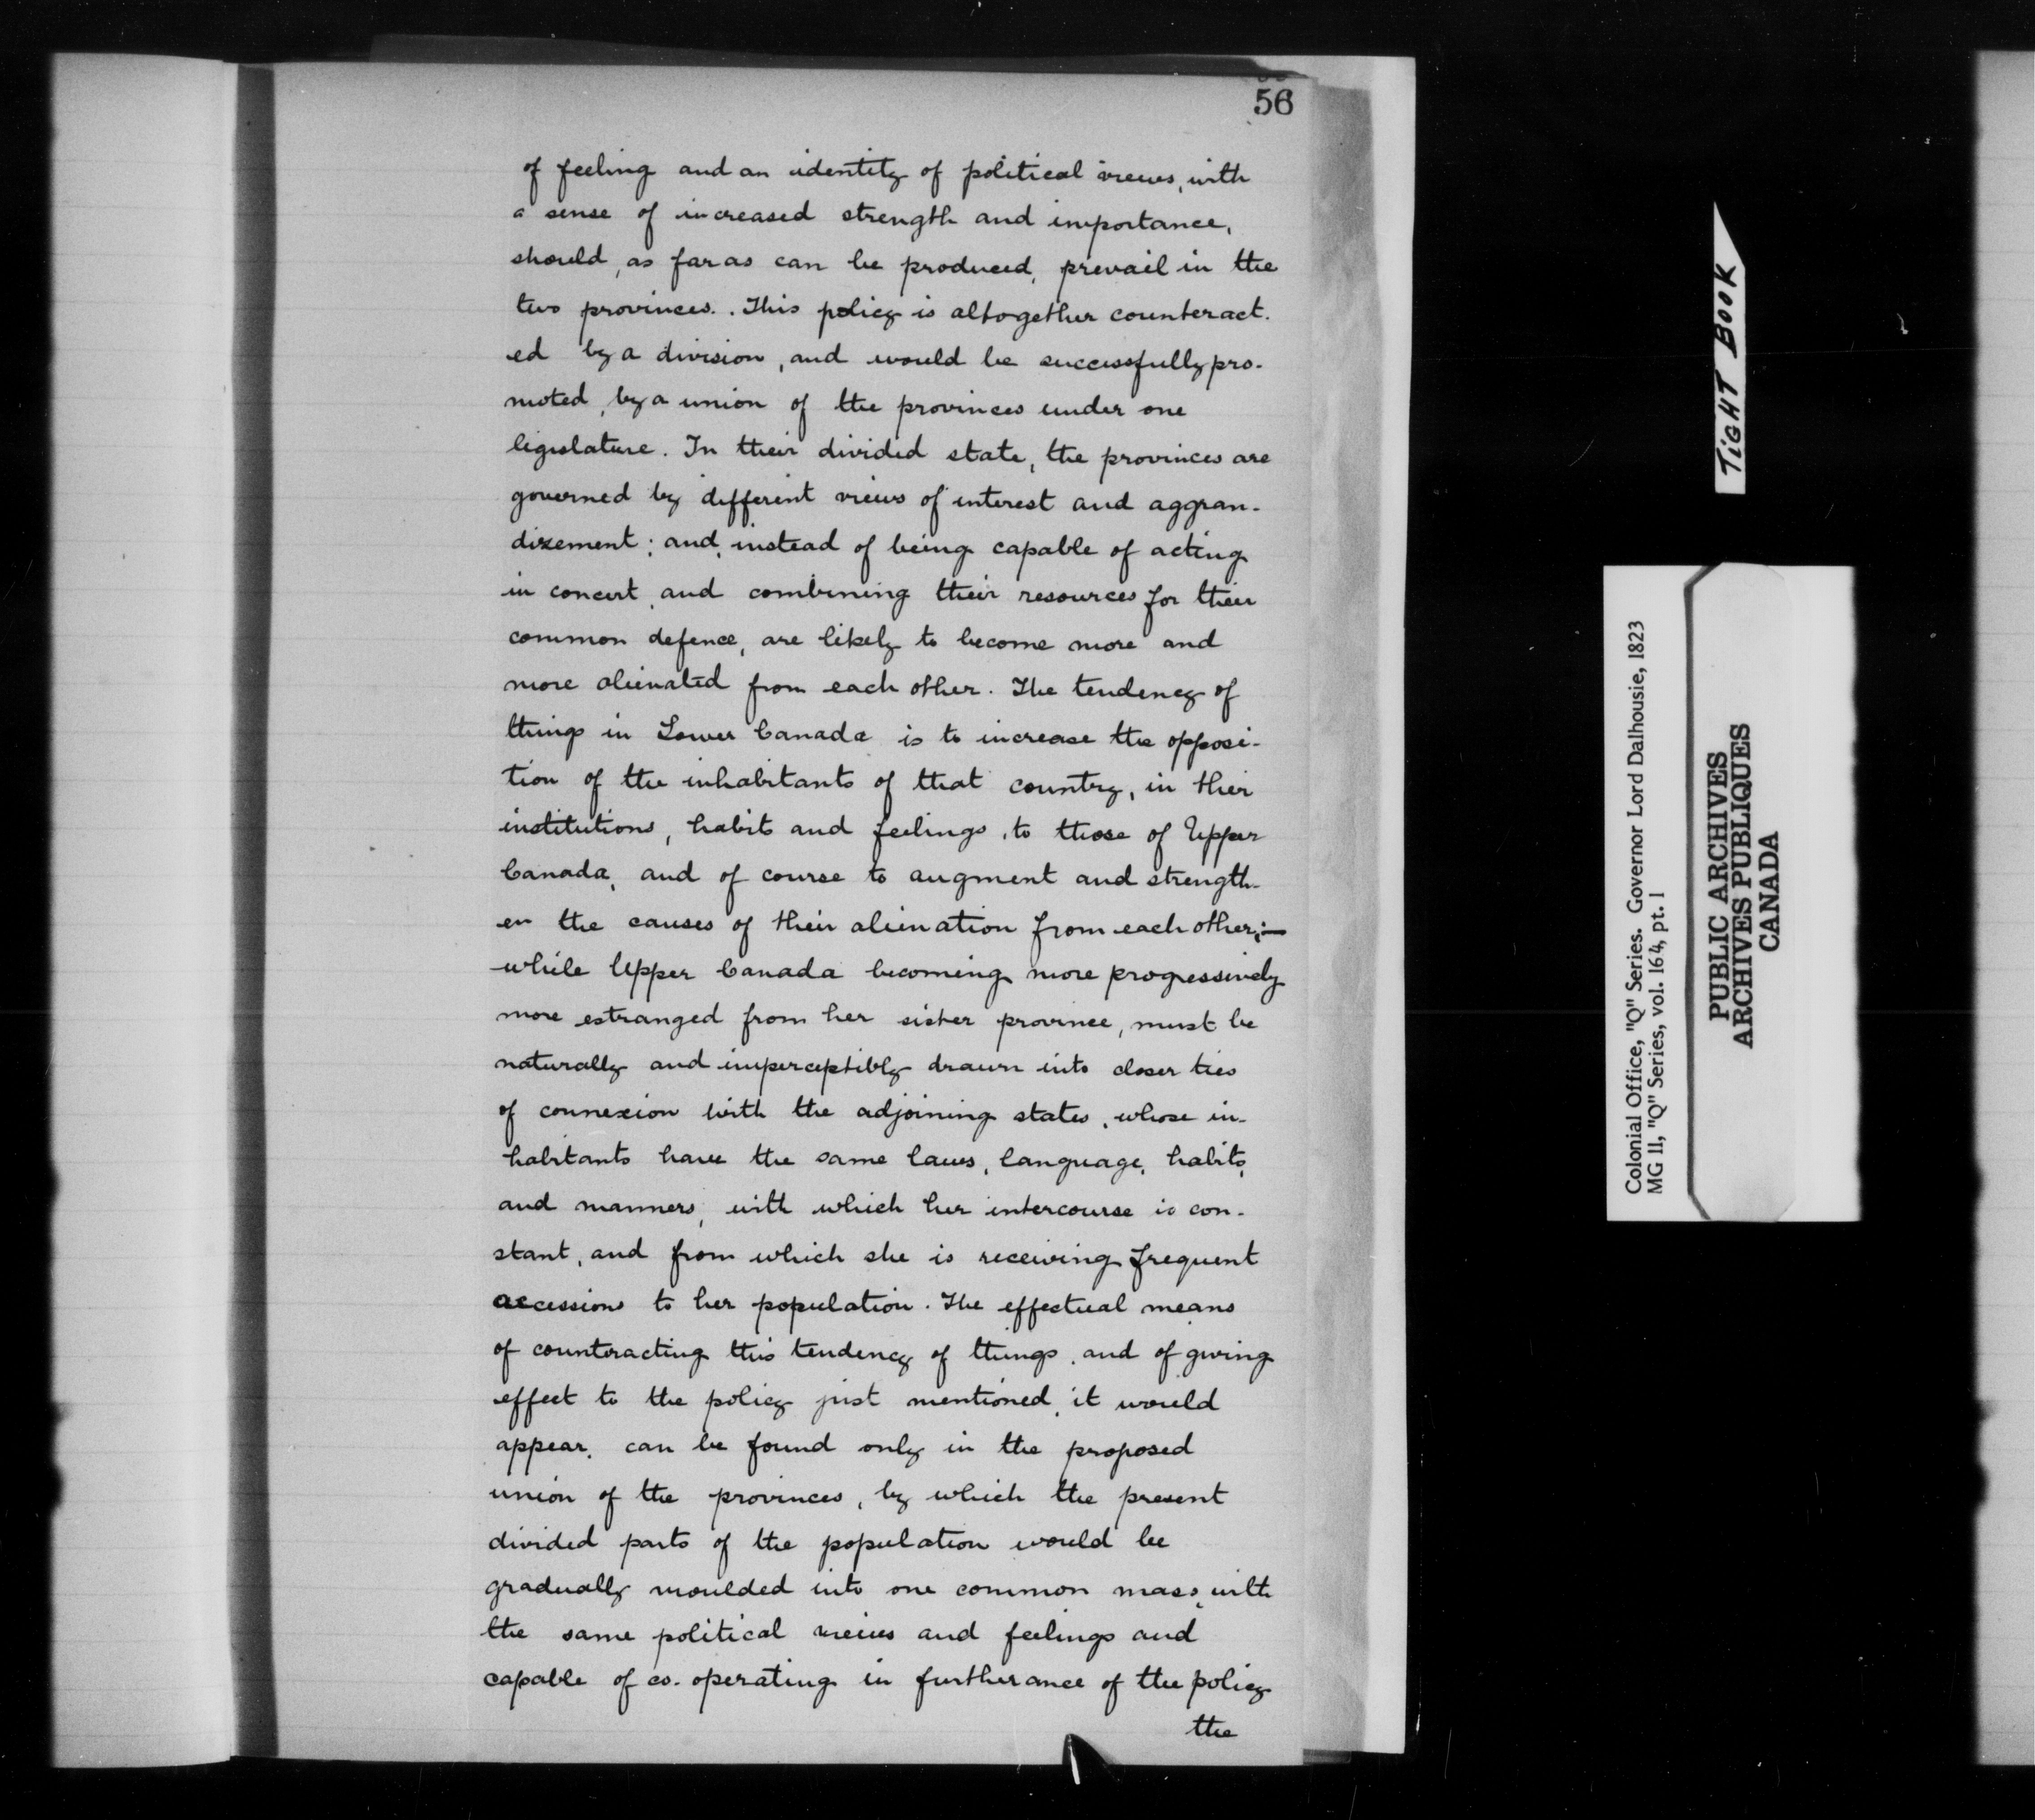 56
of feeling and an identity of political views, with
a sense of increased strength and importance,
should, as far as can be produced, prevail in the
two provinces. This policy is altogether counteract-
ed by a division, and would be successfully pro-
moted, by a union of the provinces under one
legislature. In their divided state, the provinces are
governed by different views of interest and aggran-
dizement; and, instead of being capable of acting
in concert, and combining their resources for their
common defence, are likely to become more and
more alienated from each other. The tendency of
things in Lower Canada is to increase the opposi-
tion of the inhabitants of that country, in their
institutions, habits and feelings, to those of Upper
Canada, and of course to augment and strength-
en the causes of their alienation from each other;—
while Upper Canada becoming more progressively
more estranged from her sister province, must be
naturally and imperceptibly drawn into closer ties
of connexion with the adjoining states, whose in-
habitants have the same laws, language, habits,
and manners, with which her intercourse is con-
stant, and from which she is receiving frequent
accessions to her population. The effectual means
of counteracting this tendency of things, and of giving
effect to the policy just mentioned, it would
appear, can be found only in the proposed
union of the provinces, by which the present
divided parts of the population would be
gradually moulded into one common mass, with
the same political views and feelings and
capable of co-operating in furtherance of the policy
the
TIGHT BOOK
Colonial Office, "Q" Series. Governor Lord Dalhousie, 1823
MG 11, "Q" Series, vol. 164, pt. 1
PUBLIC ARCHIVES
ARCHIVES PUBLIQUES
CANADA